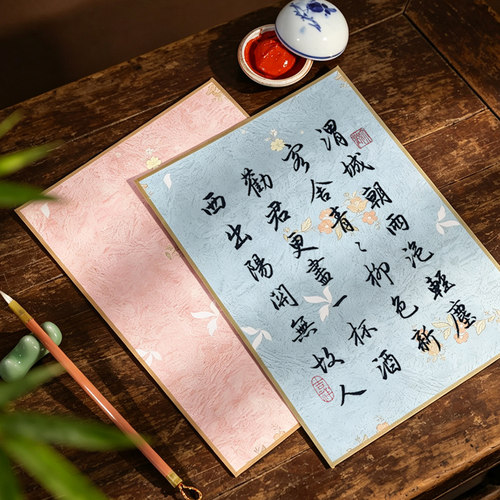 渭城朝雨浥輕塵
客舍青々柳色新
勸君更盡一杯酒
西出陽關無故人